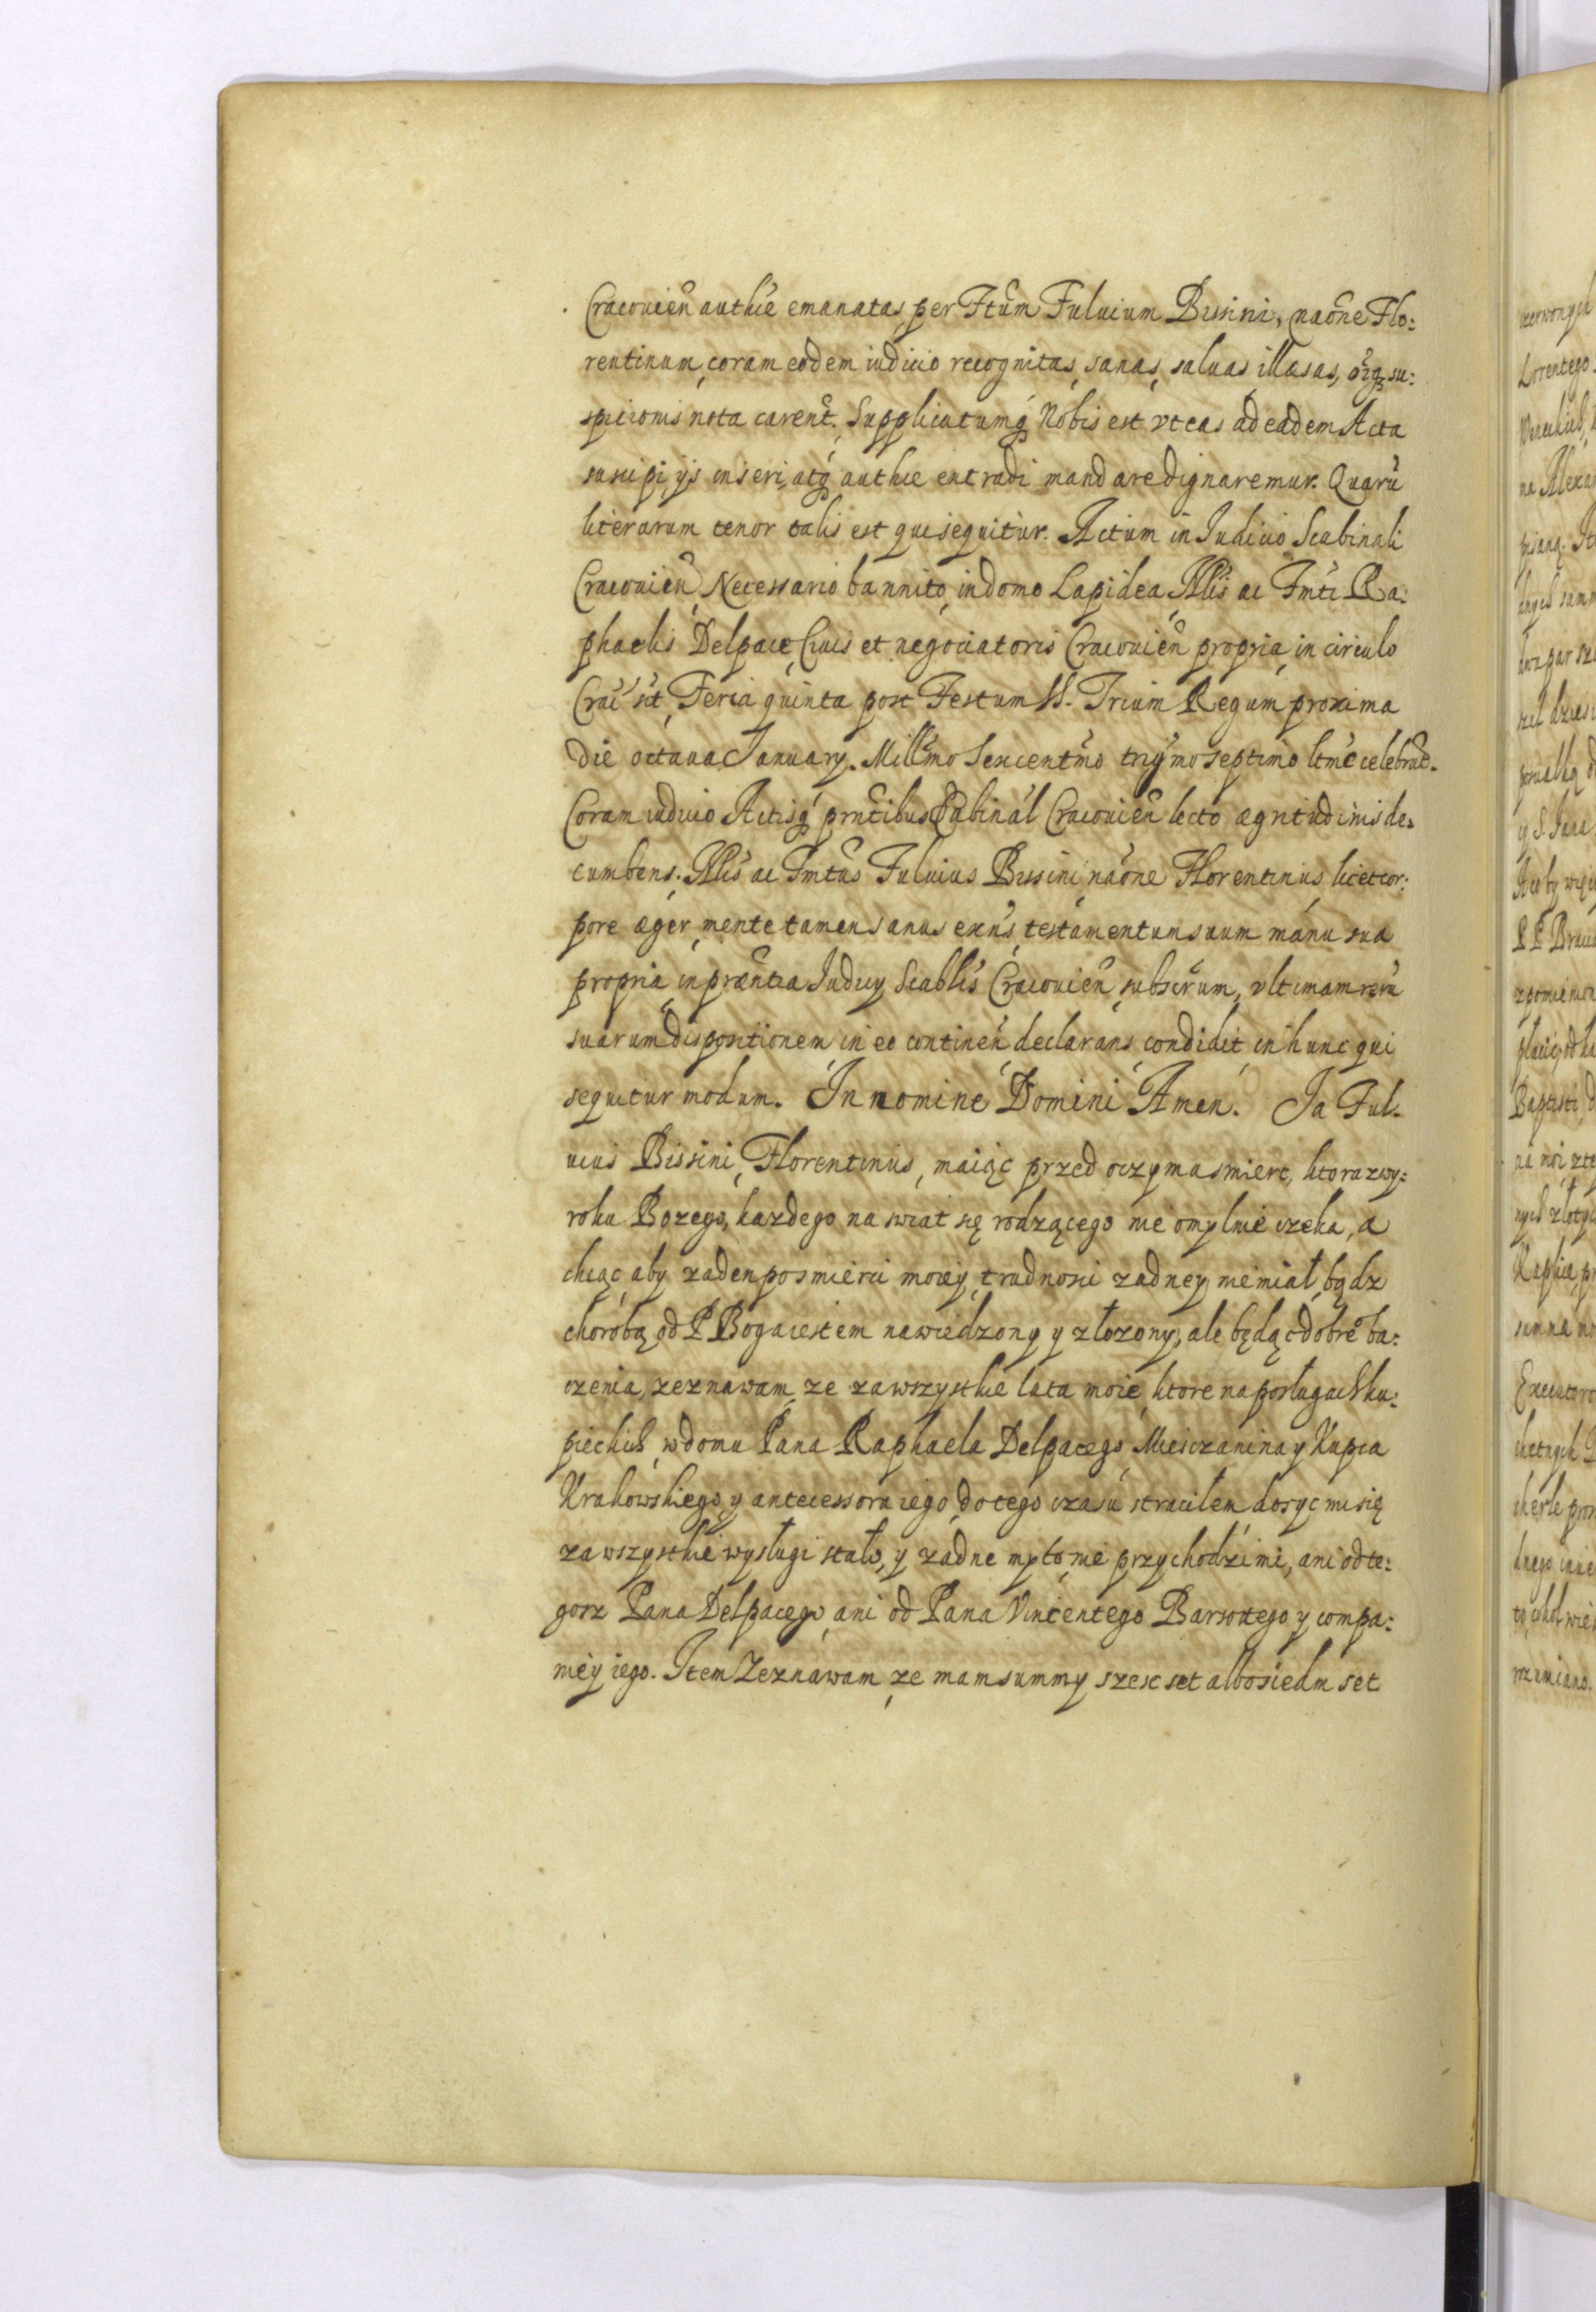 Cracovien̄ authce emanatas, per Ftum̄ Fuluium Bissini, naōne Flo:
rentinum, coram eodem iudicio recognitas, sanas, saluas, illæsas, oīq; su:
spicionis nota caren̄t. Supplicatumq́ Nobis est vt eas ad eadem Acta
suscipi ijs inseri, atq́ authce extradi mandare dignaremur. Quarū
literarum tenor talis est qui sequitur. Actum in Iudicio Scabinali
Cracouien̄ Necessario bannito, in domo Lapidea Nlis ac Fmti Ra:
phaelis Delpace Ciuis et negociatoris Cracouien̄ propria, in circulo
Crac̄ sit, Feria quinta post Festum SS. Trium Regum proxima
die octaua January. Millmo Sexcentmo trigmo septimo ltme celebrat.
Coram iudicio Actisq́ prntibus Scabinal Cracouien̄ lecto ægritudinis de:
cumbens. Nlis ac Fmtus Fuluius Bissini naōne Florentinus, licet cor:
pore æger, mente tamen sanus exn̄s, testamentum suum manu sua
propria in præntia Iudicy Scablis Cracouien̄ subscrum, vltimam rerū
suarum dispositionem in eo continen̄ declarans, condidit in hunc qui
sequitur modum. In nomine Domini Amen. Ja Ful:
uius Bissini, Florentinus, maiąc przed oczyma smierc, ktora z wy:
roku Bozego, kazdego na swiat się rodzącego nie omylnie czeka, a
chcąc aby zaden po smierci moiey, trudnosci zadney nie miał, bądz
chorobą od P Boga iestem nawiedzony y złozony, ale będąc dobrẽ ba:
czenia, zeznawam, ze za wszystkie lata moie, ktore na posługach ku:
pieckich, w domu Pana Raphaela Delpacego, Miesczanina y Kupca
Krakowskiego, y antecessora iego, do tego czasu straciłem, dosyc mi się
za wszystkie wysługi stało, y zadne myto nie przychodzi mi, ani od te:
gosz Pana Delpacego, ani od Pana Vincentego Barsottego y compa:
niey iego. Item Zeznawam, ze mam summy szesc set albo siedm set